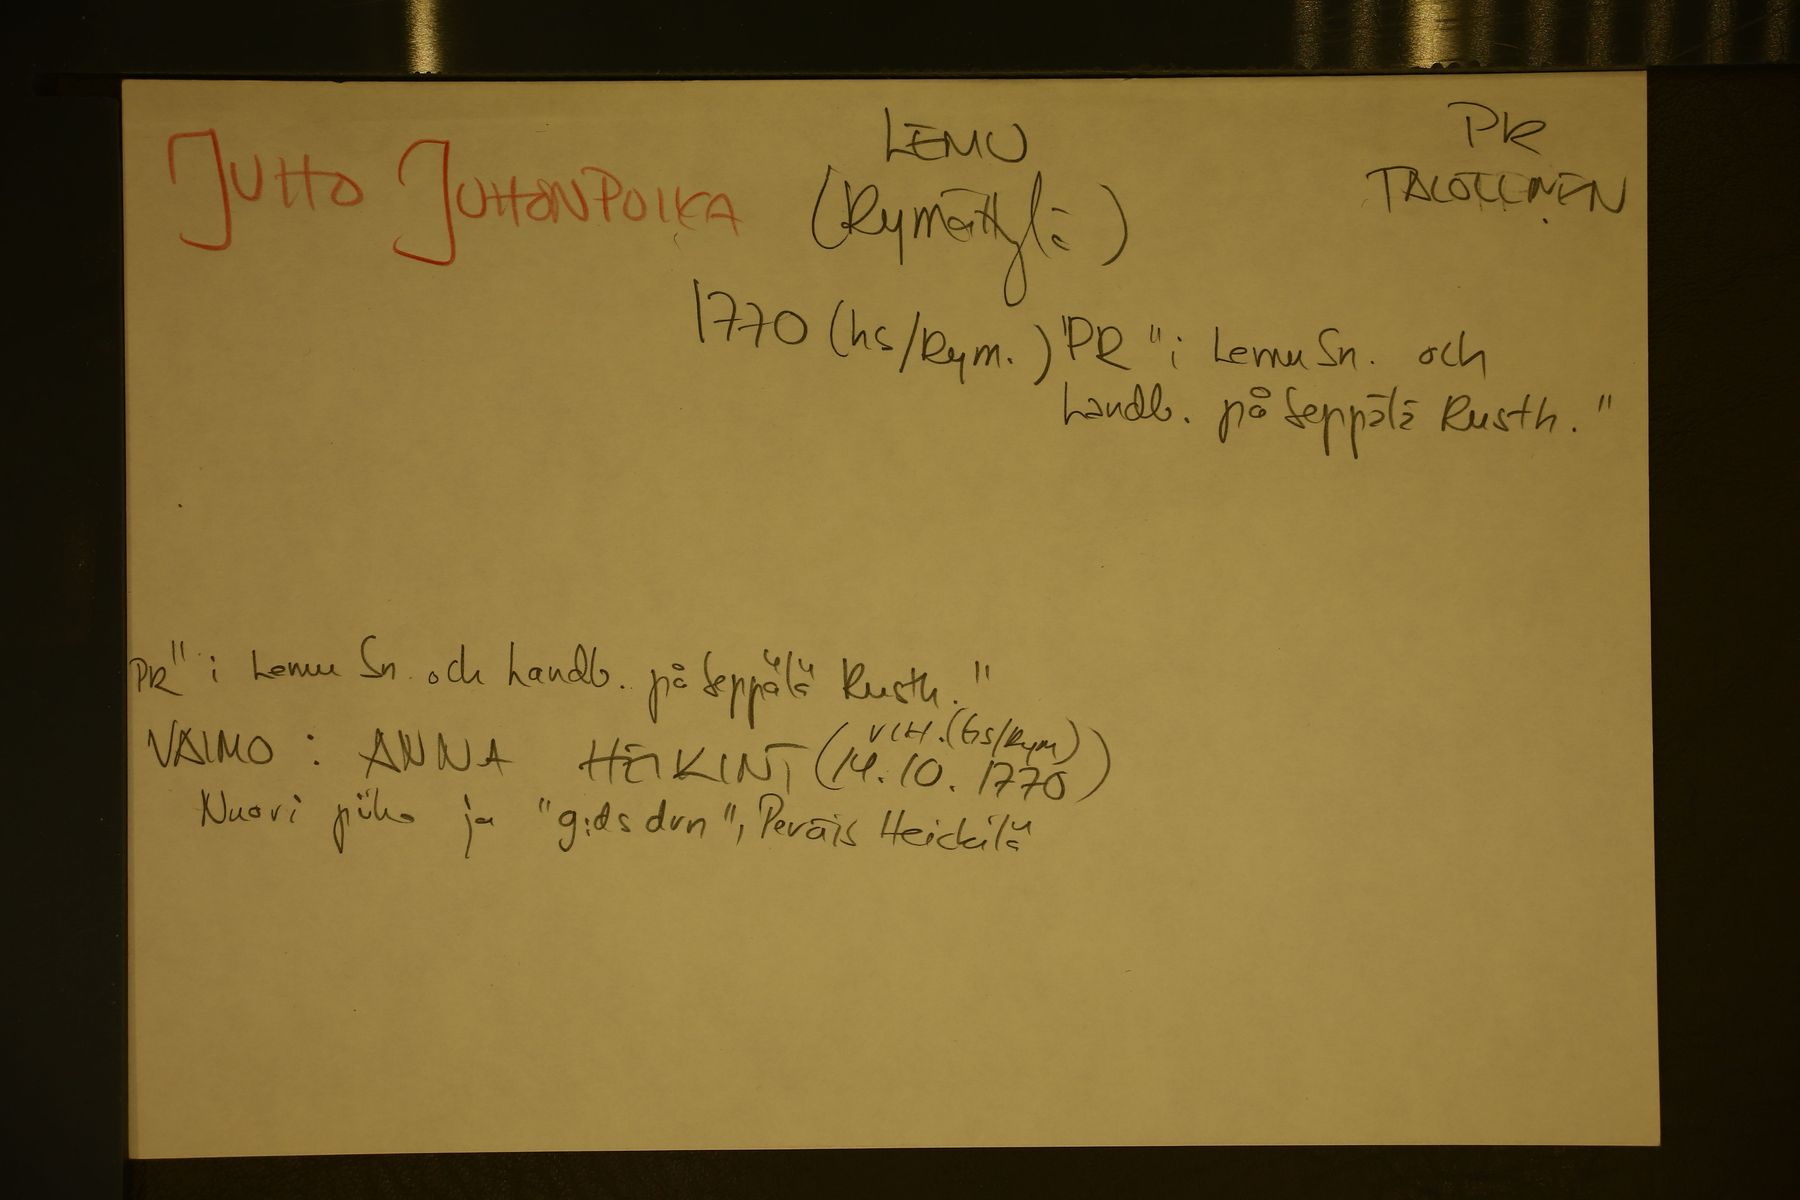 JUHO JUHONPOIKA
LEMU
(Rymättylä)
PR
TALOLLINEN
1770 (hs/Rym.) "PR" i Lemu Sn. och
Landb. på Seppälä Rusth."
PR" i Lemu Sn. och Landb. på Seppälä Rusth."
VAIMO: ANNA HEIKINT (VIH. (hs/Rym) 14.10.1770)
Nuori piika ja "g:ds drn", Peräis Heickilä